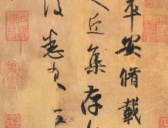 平安脩載
人近集存
復悉来